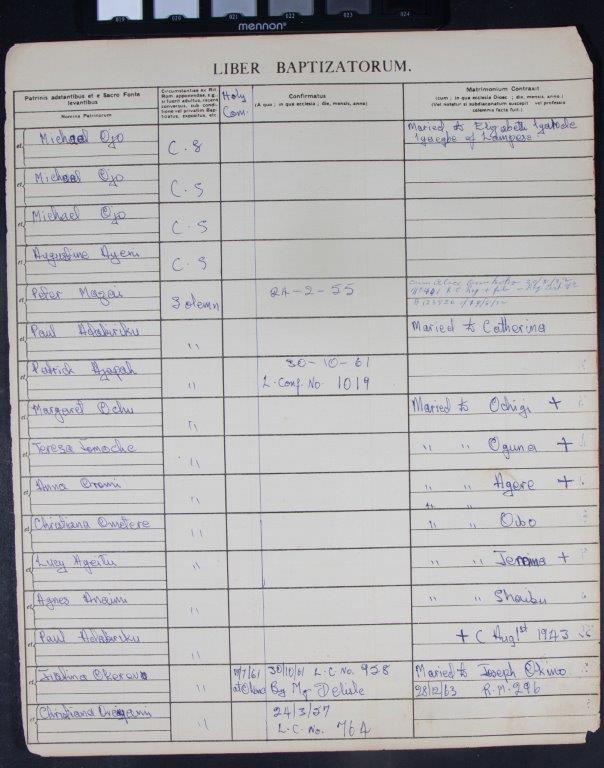 019 020 021 022 023 024
mennon
LIBER BAPTIZATORUM.
Patrinis adstantibus et e Sacro Fonte
levantibus
Nomina Patrinorum
Circumstantiae ex Rit.
Rom. apponendae, e.g.,
si fuerit adultus, recens
conversus, sub condi-
tione vel privatim Bap-
tizatus, expositus, etc
Holy
Com.
Confirmatus
(A quo ; in qua ecclesia ; die, mensis, anno)
Matrimonium Contraxit
(cum ; in qua ecclesia Dioec. ; die, mensis, anno.)
(Vel notatur si subdiaconatum suscepit vel professio
solemnis facta fuit.)
et Michael Ojo C. S Maried to Elizabeth
of Lampese
et Michael Ojo C. S
et Michael Ojo C. S
et Augustine Ayeni C. S
et Peter Solemn 24-2-55
et Paul Adabiriku " Maried to Catherina
et Patrick " 30-10-61
L. Conf. No. 1019
et Margaret Ochu " Maried to Ochigi +
et Teresa Jomoche " " " Oguna +
et Anna Oromi " " " Agere +
" "
et Christiana Ometere " " " Oibo
et Lucy " " " Jemma +
et Agnes " " " Shaibu
et Paul Adabiriku " + ( Aug 1st 1943
et Okorovo " 30/10/61 L.C No. 958 Maried to Joseph
By Mgr Delisle 28/12/63 R.M. 296
et Christiana " 24/3/57
L.C. No. 764